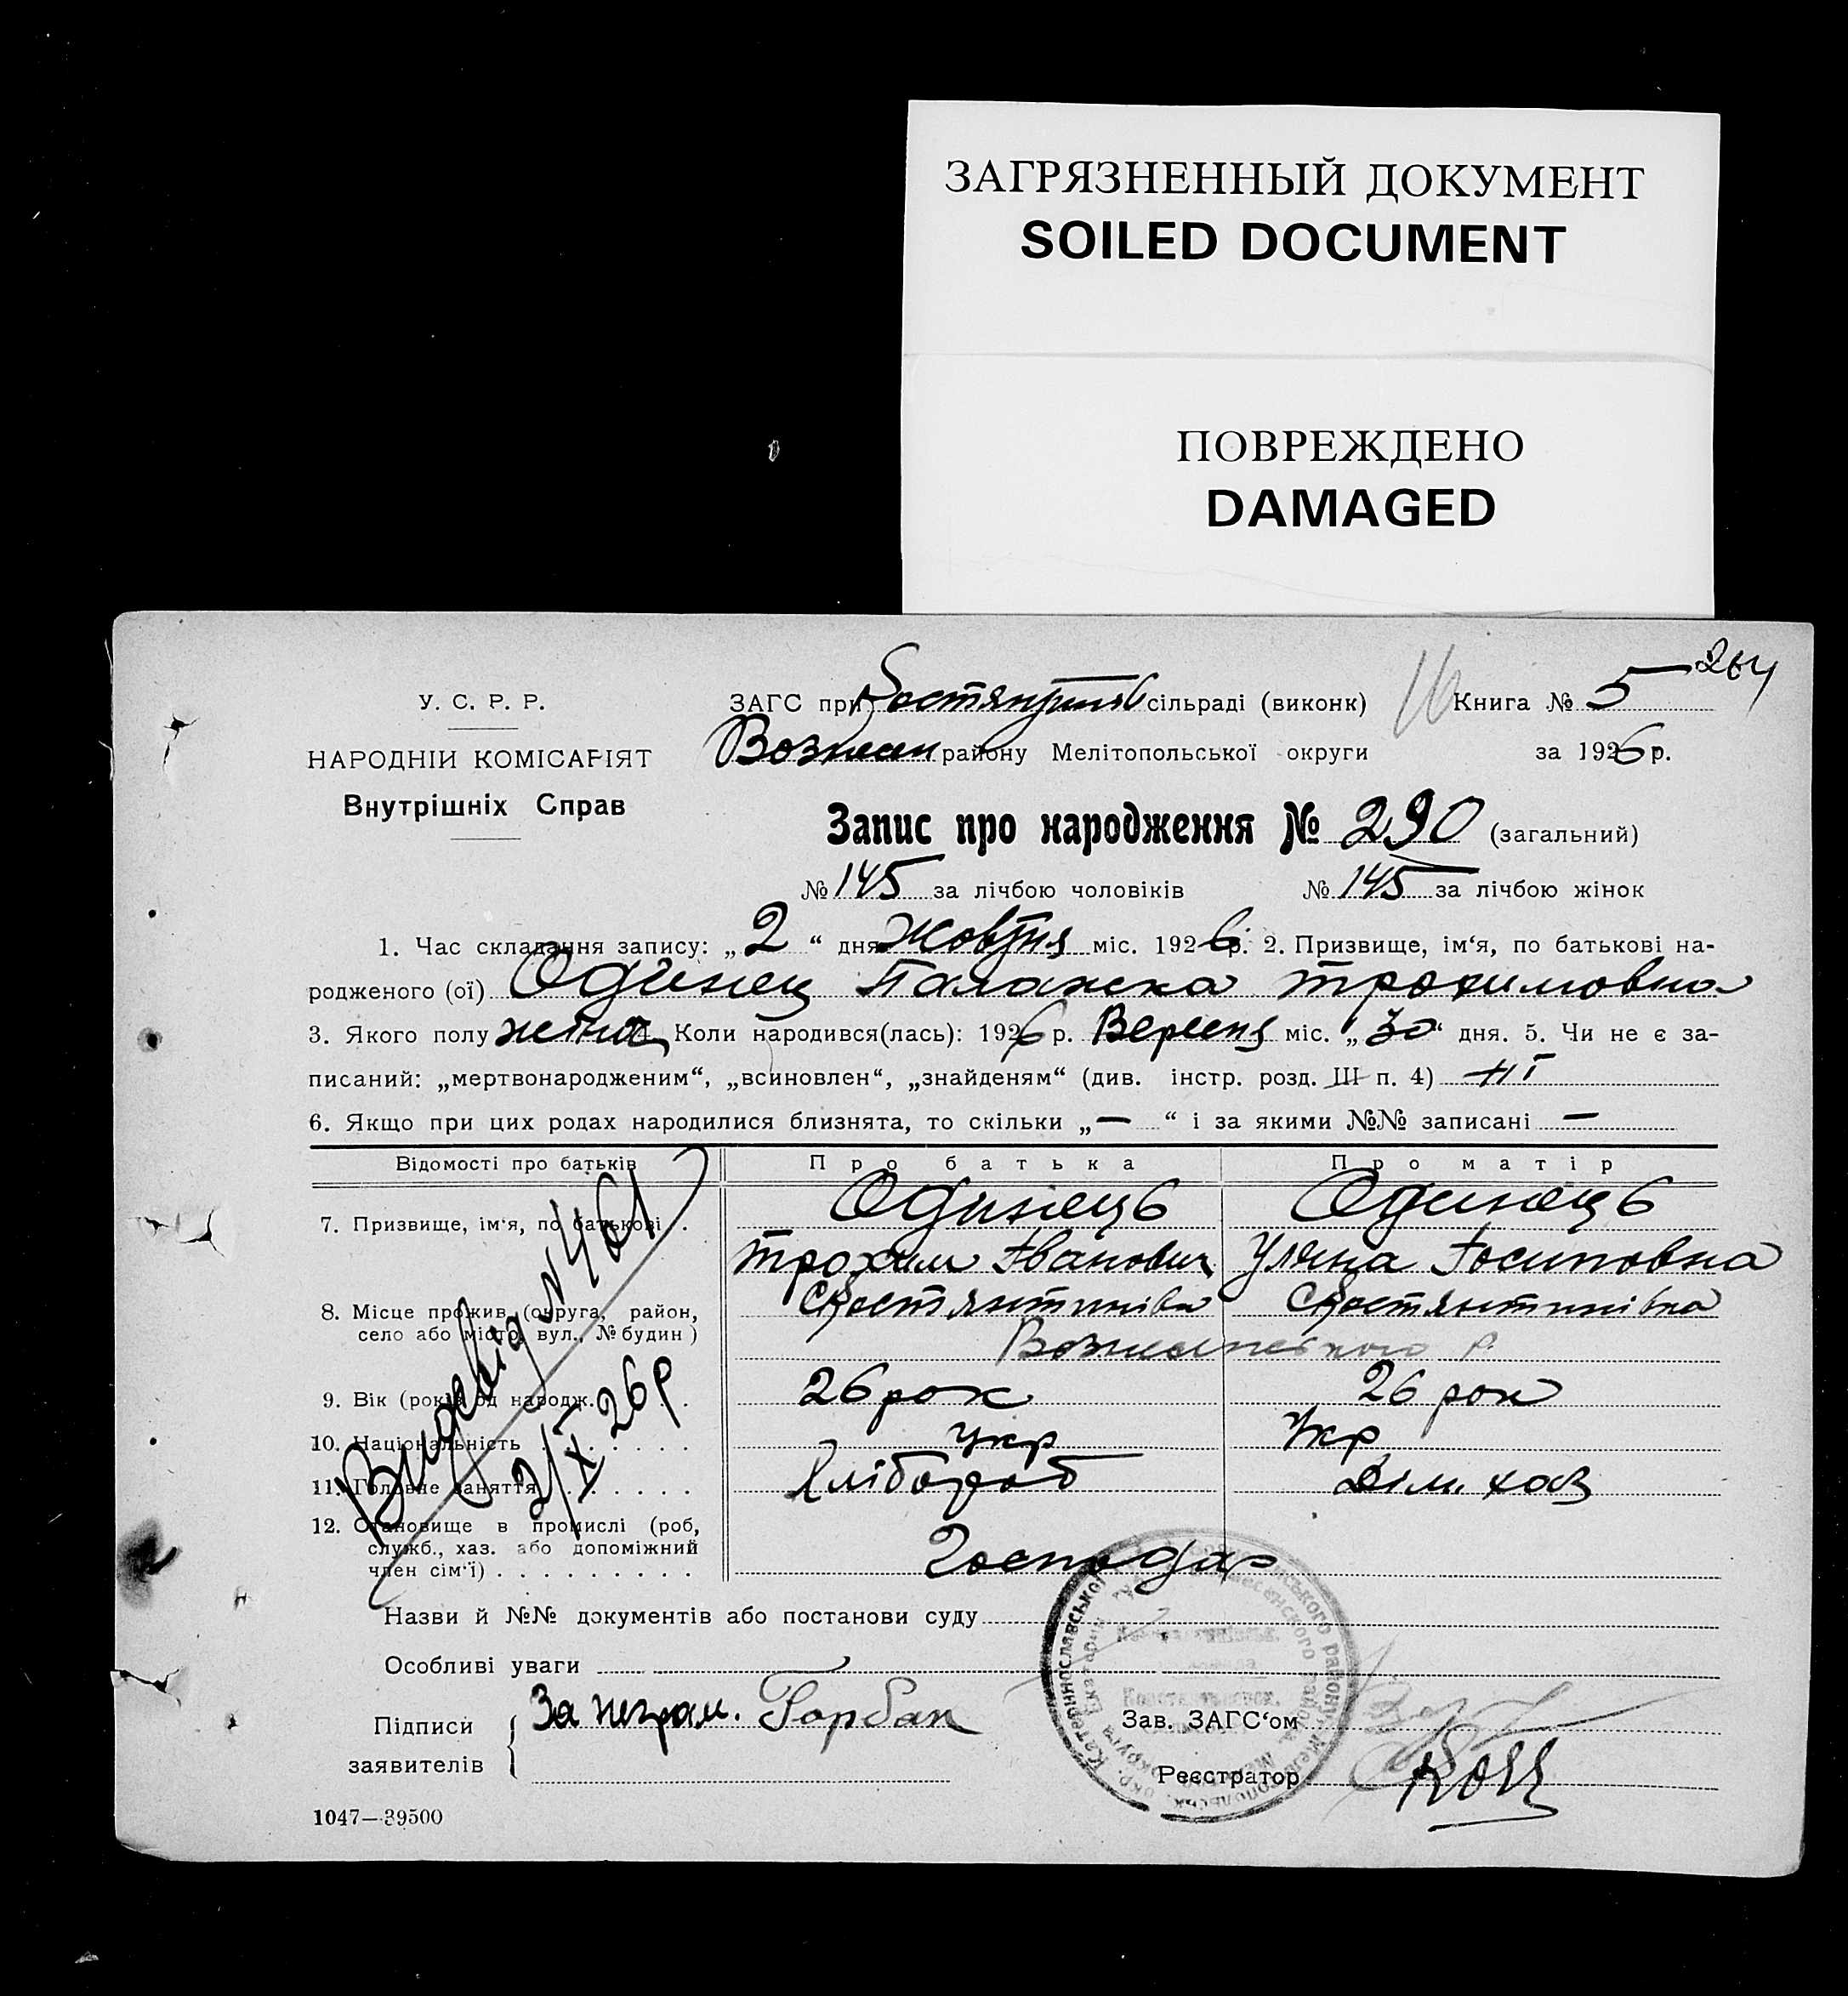 ЗАГРЯЗНЕННЫЙ ДОКУМЕНТ
SOILED DOCUMENT
ПОВРЕЖДЕНО
DAMAGED
264
16
У. С. Р. Р.
НАРОДНІЙ КОМІСАРІЯТ
Внутрішніх Справ
ЗАГС при сільраді (виконк) Книга № 5
Вознесен району Мелітопольської округи за 1926 р.
Запис про народження № 290 (загальний)
№ 145 за лічбою чоловіків № 145 за лічбою жінок
1. Час складання запису: „ 2 “ дня Жовтня міс. 1926 р. 2. Призвище, ім‘я, по батькові на-
родженого (ої) Одинец Палажка Трохимовна
3. Якого полу жіноч 4. Коли народився(лась): 1926 р. Вересня міс. „ 30 “ дня. 5. Чи не є за-
писаний: „мертвонародженим“, „всиновлен“, „знайденям“ (див. інстр. розд. III п. 4) ні
6. Якщо при цих родах народилися близнята, то скільки „ — “ і за якими №№ записані —
Відомості про батьків Про батька Про матір
7. Призвище, ім‘я, по батькові . Одинець Одинець
Трохим Іванович Уляна Іосиповна
8. Місце прожив. (округа, район,
село або місто, вул., № будин)
Вознесенського р.
9. Вік (років од народж. 26 рок 26 рок
10. Національність Укр Укр
11. Головне заняття Хлібороб Дім. хаз
12. Становище в промислі (роб,
служб., хаз. або допоміжний
член сім‘ї) Господар
Видовід N 461
2/X 26 р
Назви й №№ документів або постанови суду
Особливі уваги
Підписи За неграм. Горбан Зав. ЗАГС‘ом
заявителів Реєстратор
1047—39500